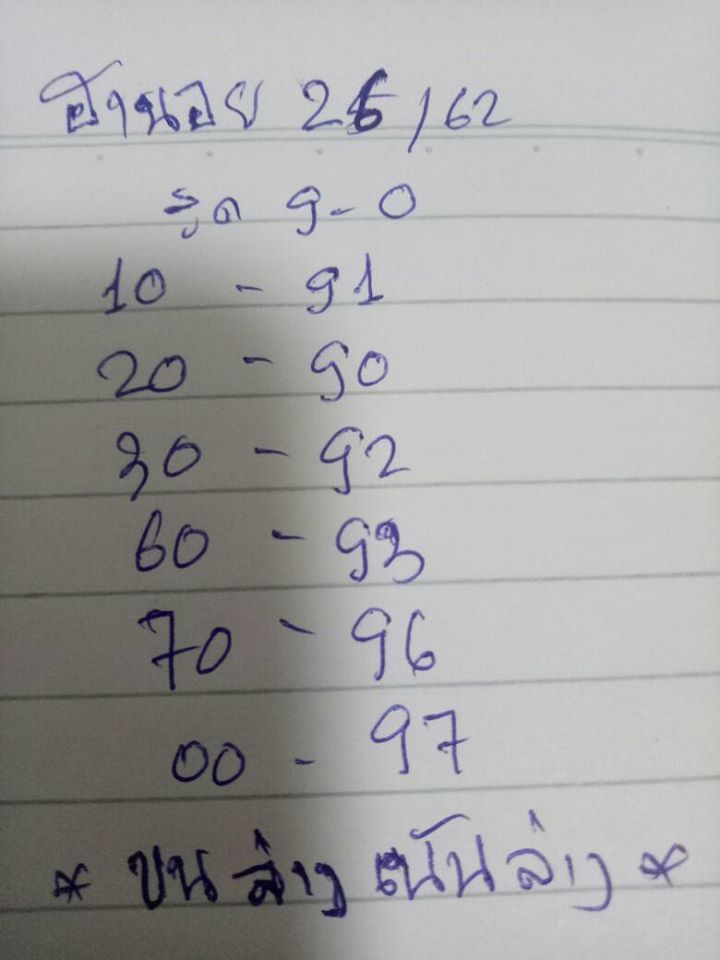 ฮานอย 26/62
รูด 9-0
10 - 91
20 - 90
30 - 92
60 - 93
70 - 96
00 - 97
* บนล่าง เน้นล่าง *